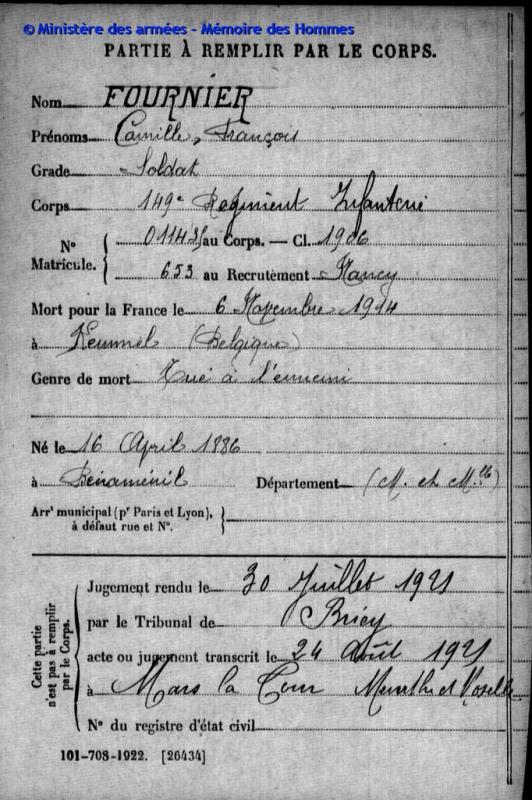 © Ministère des armées - Mémoire des Hommes
PARTIE À REMPLIR PAR LE CORPS.
Nom FOURNIER
Prénoms Camille, François
Grade Soldat
Corps 149e Régiment Infanterie
N° Matricule. { au Corps. — Cl. 1906
653 au Recrutement Nancy
Mort pour la France le 6 Novembre 1914
à Kemmel (Belgique)
Genre de mort Tué à l'ennemi
Né le 16 April 1886
à Bénaménil Département (M. et M.lle)
Arrt municipal (pr Paris et Lyon), à défaut rue et N°. {
Cette partie n'est pas à remplir par le Corps.
Jugement rendu le 30 Juillet 1921
par le Tribunal de Briey
acte ou jugement transcrit le 24 Août 1921
à Mars la Tour Meurthe et Moselle
N° du registre d'état civil
101-708-1922. [26434]